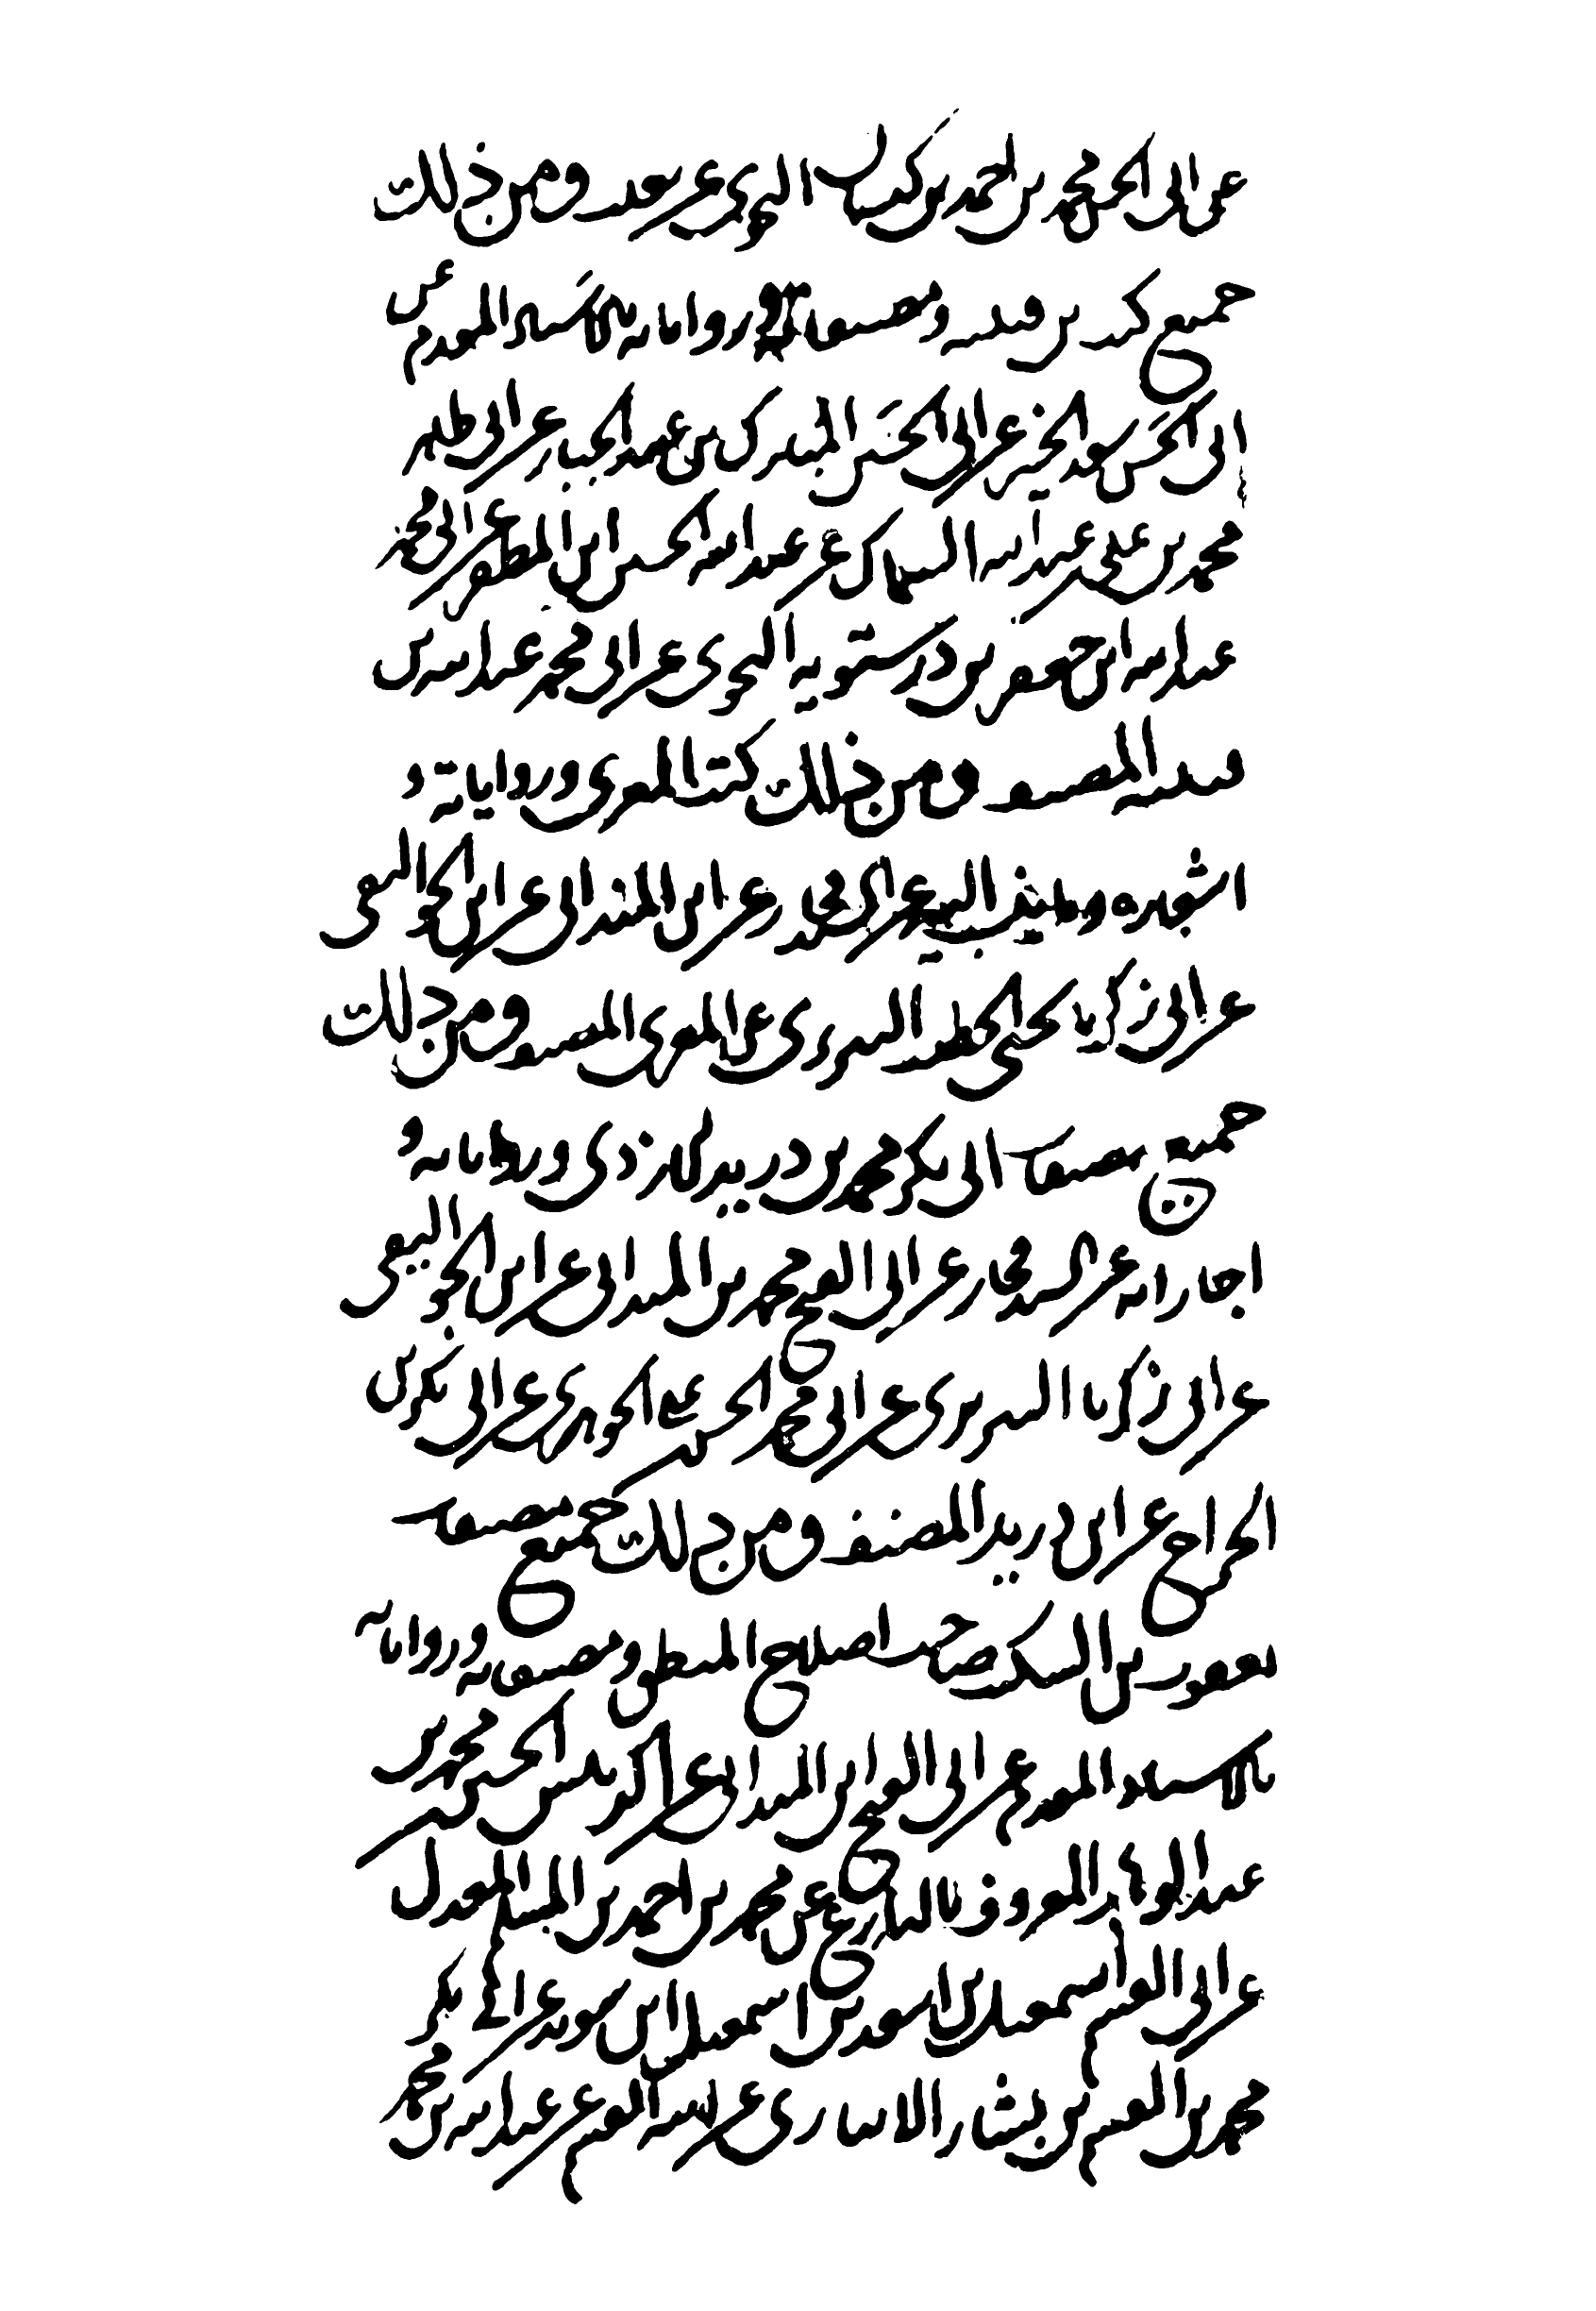 عن ابى الحسن محمد بن احمد بن كيسان النحوى عن ثعلب ومن ذلك
جميع كتب بن قتيبه ومصنفاته ورواياته بالاسناد المقدم عن
ابى الحسن سعد الخير عن ابى الحسين المبارك بن عبد الجبار عن ابى طاهر
محمد بن على بن عبد الله السماك عن عبد الله الحسين ابن المظفر عن ابى محمد
عبد الله ابن جعفر بن درستويه النحوى عن ابى محمد عبد الله بن
قتيبه المصنف ومن ذلك كتب المعرى ورواياته و
اشعاره عن السيد فخار عن ابن المندائى عن ابن الجواليقى
عن ابى زكريا يحيى الخطيب التبريزى عن المعرى المصنف ومن ذلك
جميع مصنفات ابى بكر محمد بن دريد الازدى ورواياته و
اجازاته عن السيد فخار عن ابى الفتح محمد بن الميدانى عن ابن الجواليقى
عن ابى زكريا التبريزى عن ابى محمد الحسن بن على الجوهرى عن ابى بكر بن
الجراح عن ابن دريد المصنف ومن ذلك جميع مصنفات
يعقوب بن السكيت صاحب اصلاح المنطق ومصنفاته ورواياته
بالاسناد المقدم عن ابى الفتح ابن الميدانى عن الحسين محمد بن
عبد الوهاب المعروف بالبارع عن محمد بن احمد بن المسلم المعدل
عن ابى القسم اسمعيل بن اسعد بن اسمعيل ابن سويد عن ابى بكر
محمد بن القسم بن بشار الانبارى عن ابيه القسم عن عبد الله بن محمد